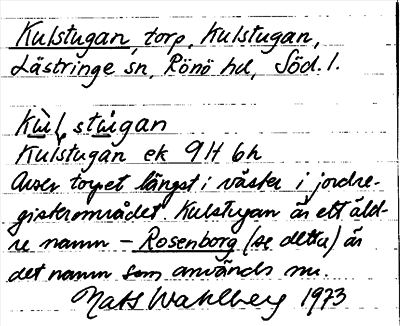 Kulstugan, torp, Kulstugan,
Lästringe sn, Rönö hd, Söd. l.
Kùlstúgan
Kulstugan ek 9H 6h
Avser torpet längst i väster i jordre-
gisterområdet. Kulstugan är ett äld-
re namn – Rosenborg (se detta) är
det namn som används nu.
Mats Wahlberg 1973